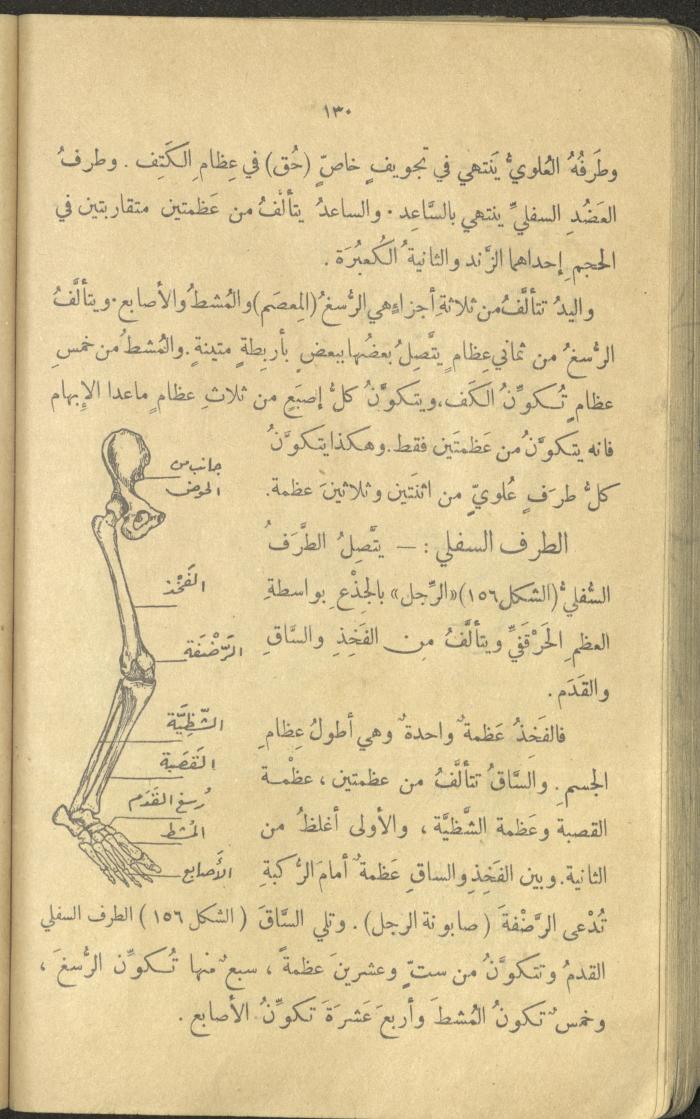 ١٣٠
وطَرفُهُ العُلويُّ يَنتهي في تجويفٍ خاصٍّ (حُق) في عِظامِ الكَتِف . وطرفُ
العَضُدِ السفليِّ ينتهي بالسَّاعِد . والساعدُ يتألفُ من عَظمتين متقاربتين في
الحجمِ إحداهما الزَّند والثانيةُ الكُعبُرَة .
واليدُ تتألَّفُ من ثلاثةِ أجزاءٍ هي الرُّسغُ (المِعصَم) والمُشطُ والأصابع . ويتألَّفُ
الرُّسغُ من ثماني عِظامٍ يتَّصِلُ بعضُها ببعضٍ بأربِطةٍ متينةٍ . والمُشطُ من خمسِ
عظامٍ تُكوِّنُ الكَف، ويتكوَّنُ كلُّ إصبَعٍ من ثلاثِ عظامٍ ماعدا الإبهام
فانه يتكوَّنُ من عَظمتَين فقط . وهكذا يتكوَّنُ
كلُّ طرَفٍ عُلويٍّ من اثنَتين وثلاثينَ عظمة .
الطرف السفلي : — يتَّصِلُ الطَّرَفُ
السُّفليُّ (الشكل ١٥٦) «الرِّجل» بالجِذْعِ بواسطةِ
العظمِ الحَرْقَفيِّ ويتألَّفُ مِن الفَخِذِ والسَّاقِ
والقَدَم .
فالفَخِذُ عَظمةٌ واحدةٌ وهي أطولُ عِظامِ
الجسمِ . والسَّاقُ تتألَّفُ من عظمتين ، عظْمة
القصبة وعَظمة الشَّظيَّة ، والأولى أغلظُ من
الثانية . وبين الفَخِذِ والساقِ عَظمةٌ أمامَ الرُّكبةِ
تُدْعى الرَّضْفةَ (صابونة الرجل) . وتلي السَّاقَ
القدمُ وتتكوَّنُ من ستٍّ وعشرينَ عظمةً ، سبعٌ منها تُكوِّن الرُّسغَ ،
وخمسٌ تكونُ المُشطَ وأربعَ عَشرَةَ تكوِّنُ الأصابع .
جانب من
الحوض
الفَخْذ
الرَّضْفَة
الشّظِيَّة
القَصَبة
رُسغ القَدَم
المُشط
الأَصابع
(الشكل ١٥٦) الطرف السفلي